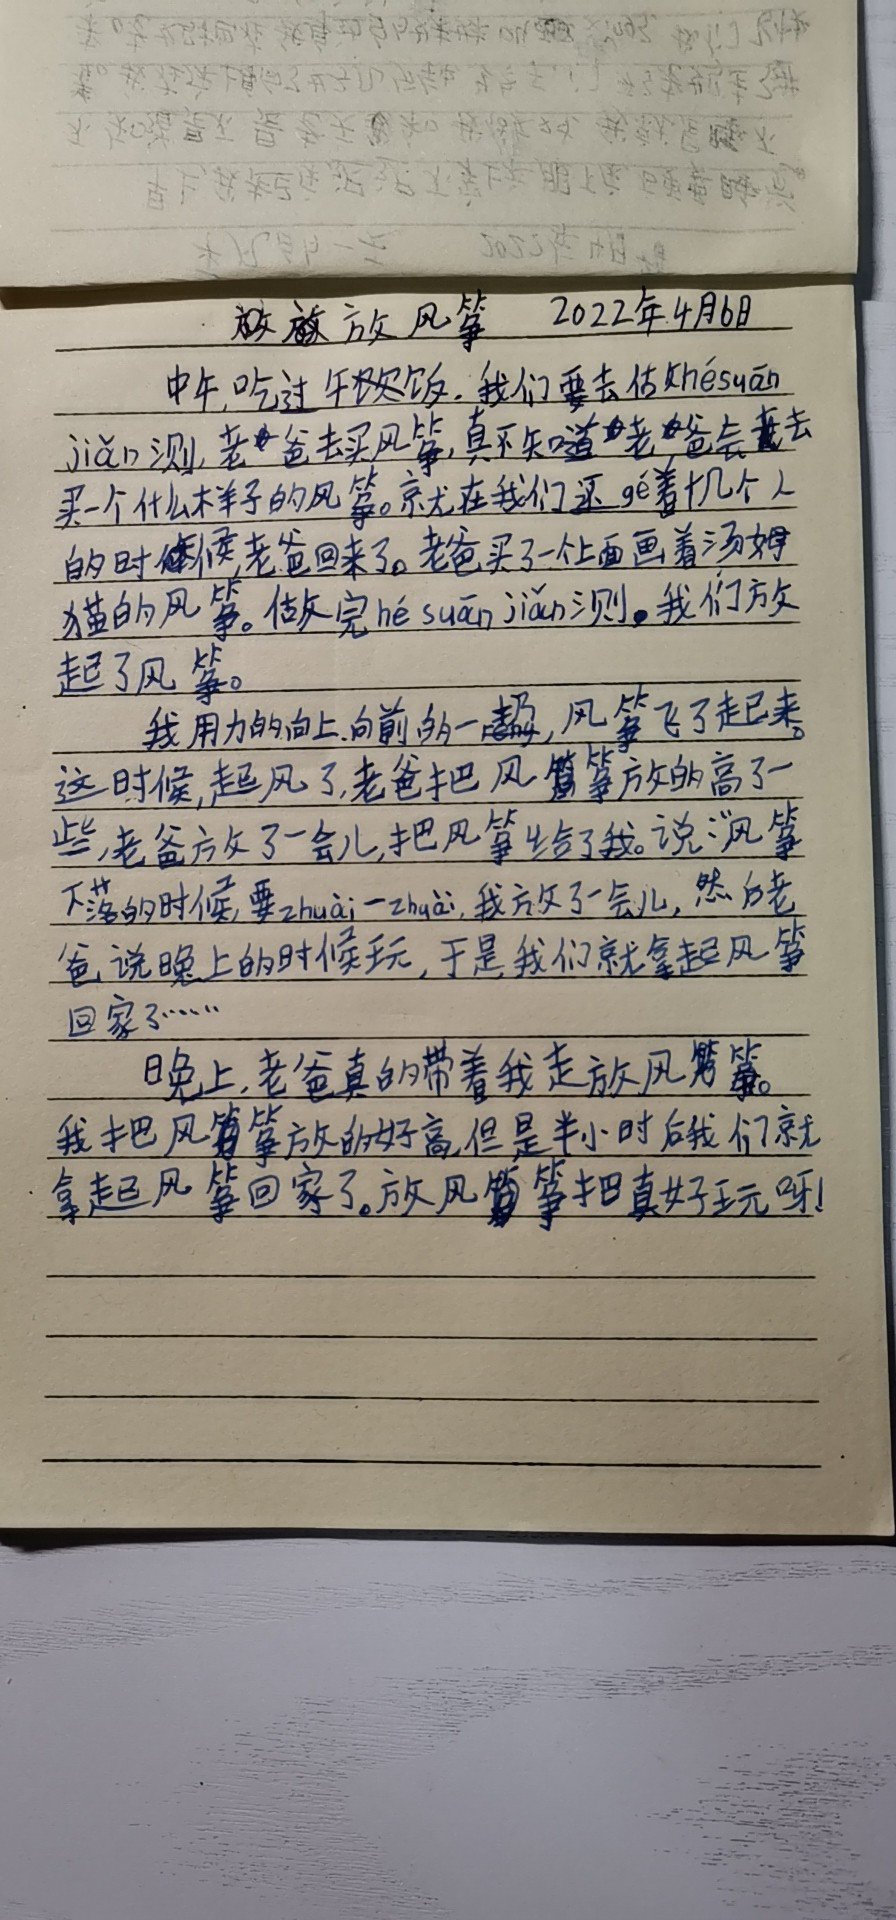 放风筝 2022年4月6日
中午,吃过午饭.我们要去做hésuān
jiǎn测,老爸去买风筝,真不知道老爸会去
买一个什么样子的风筝。就在我们还gé着十几个人
的时候,老爸回来了。老爸买了一个上面画着汤姆
猫的风筝。做完hé suān jiǎn测。我们放
起了风筝。
我用力的向上.向前的一,风筝飞了起来。
这时候,起风了,老爸把风筝放的高了一
些,老爸放了一会儿,把风筝给了我。说:“风筝
下落的时候,要zhuài一zhuài,我放了一会儿,然后老
爸说晚上的时候玩,于是,我们就拿起风筝
回家了……
晚上,老爸真的带着我走放风筝。
我把风筝放的好高,但是半小时后我们就
拿起风筝回家了。放风筝把真好玩呀!